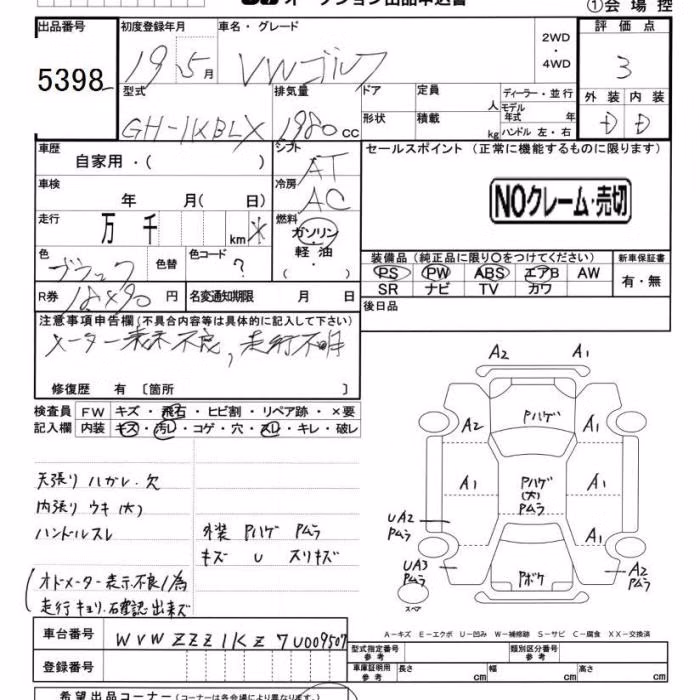 オークション出品申込書
①会場控
出品番号 初度登録年月 車名・グレード 2WD・4WD 評価点
5398 19 5月 VWゴルフ 3
型式 排気量 ドア 定員 人 ディーラー・並行 外装 内装
GH-1KBLX 1980cc 形状 積載 kg モデル年式 年 D D
ハンドル 左・右
車歴 自家用・( ) シフト AT セールスポイント (正常に機能するものに限ります)
車検 年 月( 日) 冷房 AC
NOクレーム・売切
走行 万 千 km 燃料 ガソリン・軽油・( )
色 ブラック 色替 色コード ?
装備品 (純正品に限り〇をつけてください) 新車保証書
PS PW ABS エアB AW 有・無
SR ナビ TV カワ
R券 18490円 名変通知期限 月 日
後日品
注意事項申告欄 (不具合内容等は具体的に記入して下さい)
メーター表示不良, 走行不明
修復歴 有 〔箇所 〕
検査員記入欄 FW キズ・飛石・ヒビ割・リペア跡・×要
内装 キズ・汚レ・コゲ・穴・スレ・キレ・破レ
天張り ハガレ・欠
内張り ウキ(大)
ハンドルスレ
外装 Pハゲ Pムラ
キズ U スリキズ
(オドメーター表示不良ノ為
走行キョリ確認出来ズ)
A2 A1
Pハゲ
A2 A1
A1 Pハゲ(大) Pムラ A1
UA2 Pムラ A1
UA3 Pムラ Pボケ A2 Pムラ
スペア
A-キズ E-エクボ U-凹み W-補修跡 S-サビ C-腐食 XX-交換済
車台番号 WVWZZZ1KZ7U009507
登録番号
型式指定番号 参考 類別区分番号 参考
車庫証明用 参考 長さ cm 幅 cm 高さ cm
希望出品コーナー (コーナーは各会場により異なります)